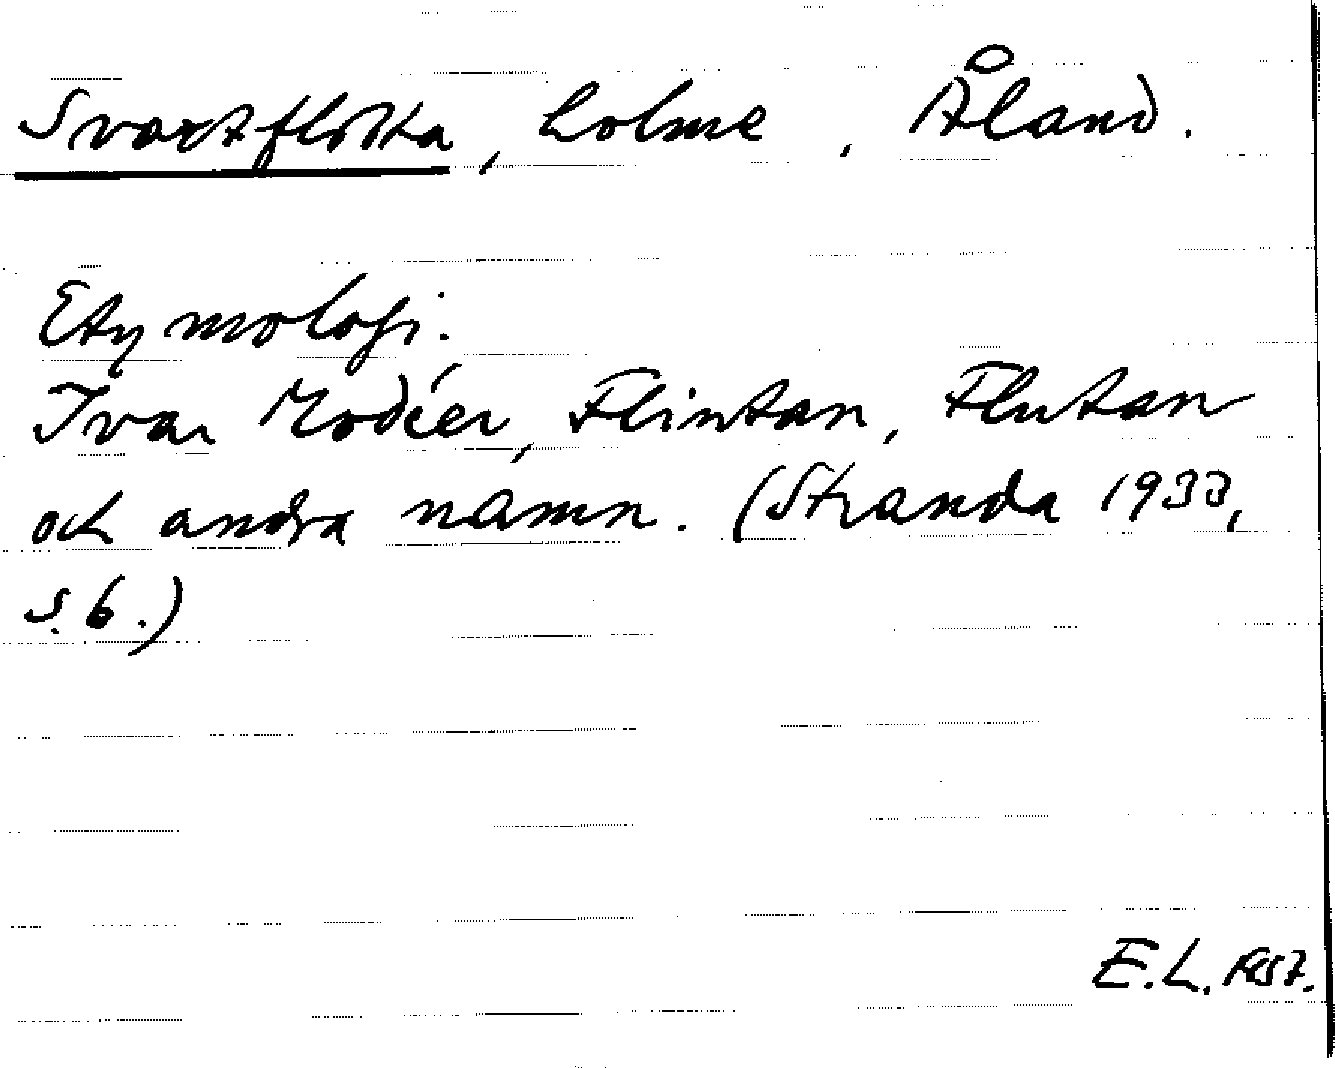 Svartflotta, holme, Åland.
Etymologi.
Ivar Modéer, Flintan, Flutan
och andra namn. (Stranda 1933,
s. 6.)
E.L. 1957.